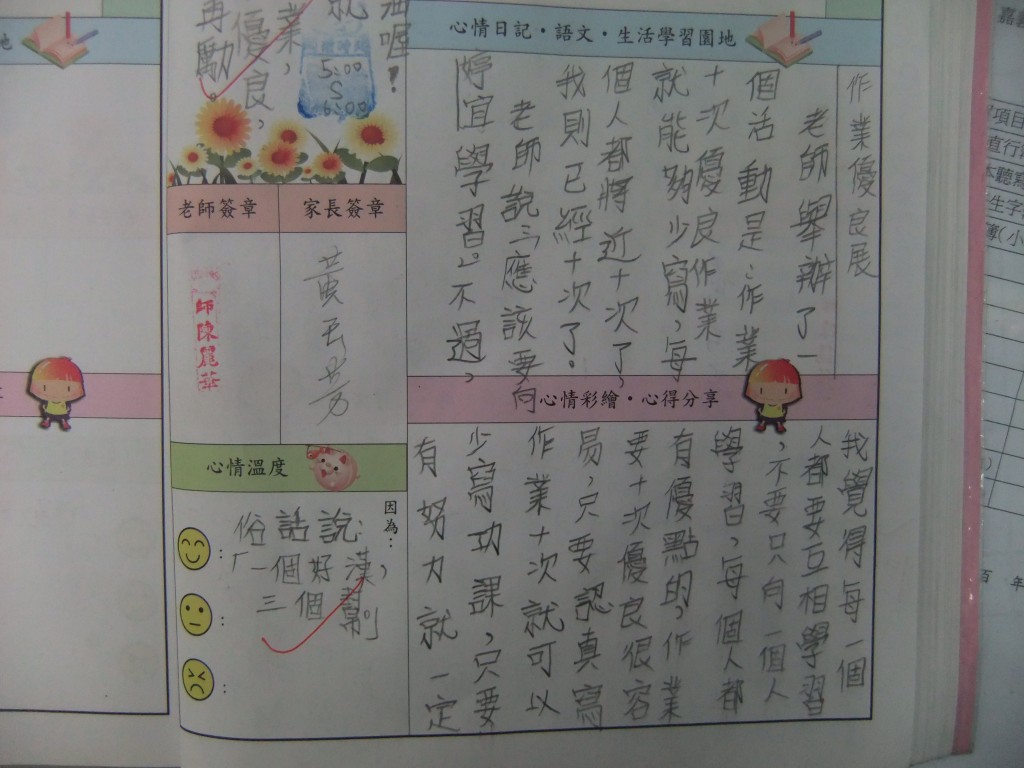 心情日記・語文・生活學習園地
作業優良展
老師舉辦了一
個活動是:作業
十次優良作業
就能夠少寫,每
個人都將近十次了,
我則已經十次了。
老師說:「應該要向
婷宜學習」。不過,
心情彩繪・心得分享
我覺得每一個
人都要互相學習
,不要只向一個人
學習,每個人都
有優點的,作業
要十次優良很容
易,只要認真寫
作業十次就可以
少寫功課,只要
有努力就一定
業,
優良,
再勵。
5:00
6:00
老師簽章
家長簽章
心情溫度
因為:
俗話說:
「一個好漢,
三個
師陳麗華
嘉義
項目
直行
本聽寫
生字
簿(小
百 年